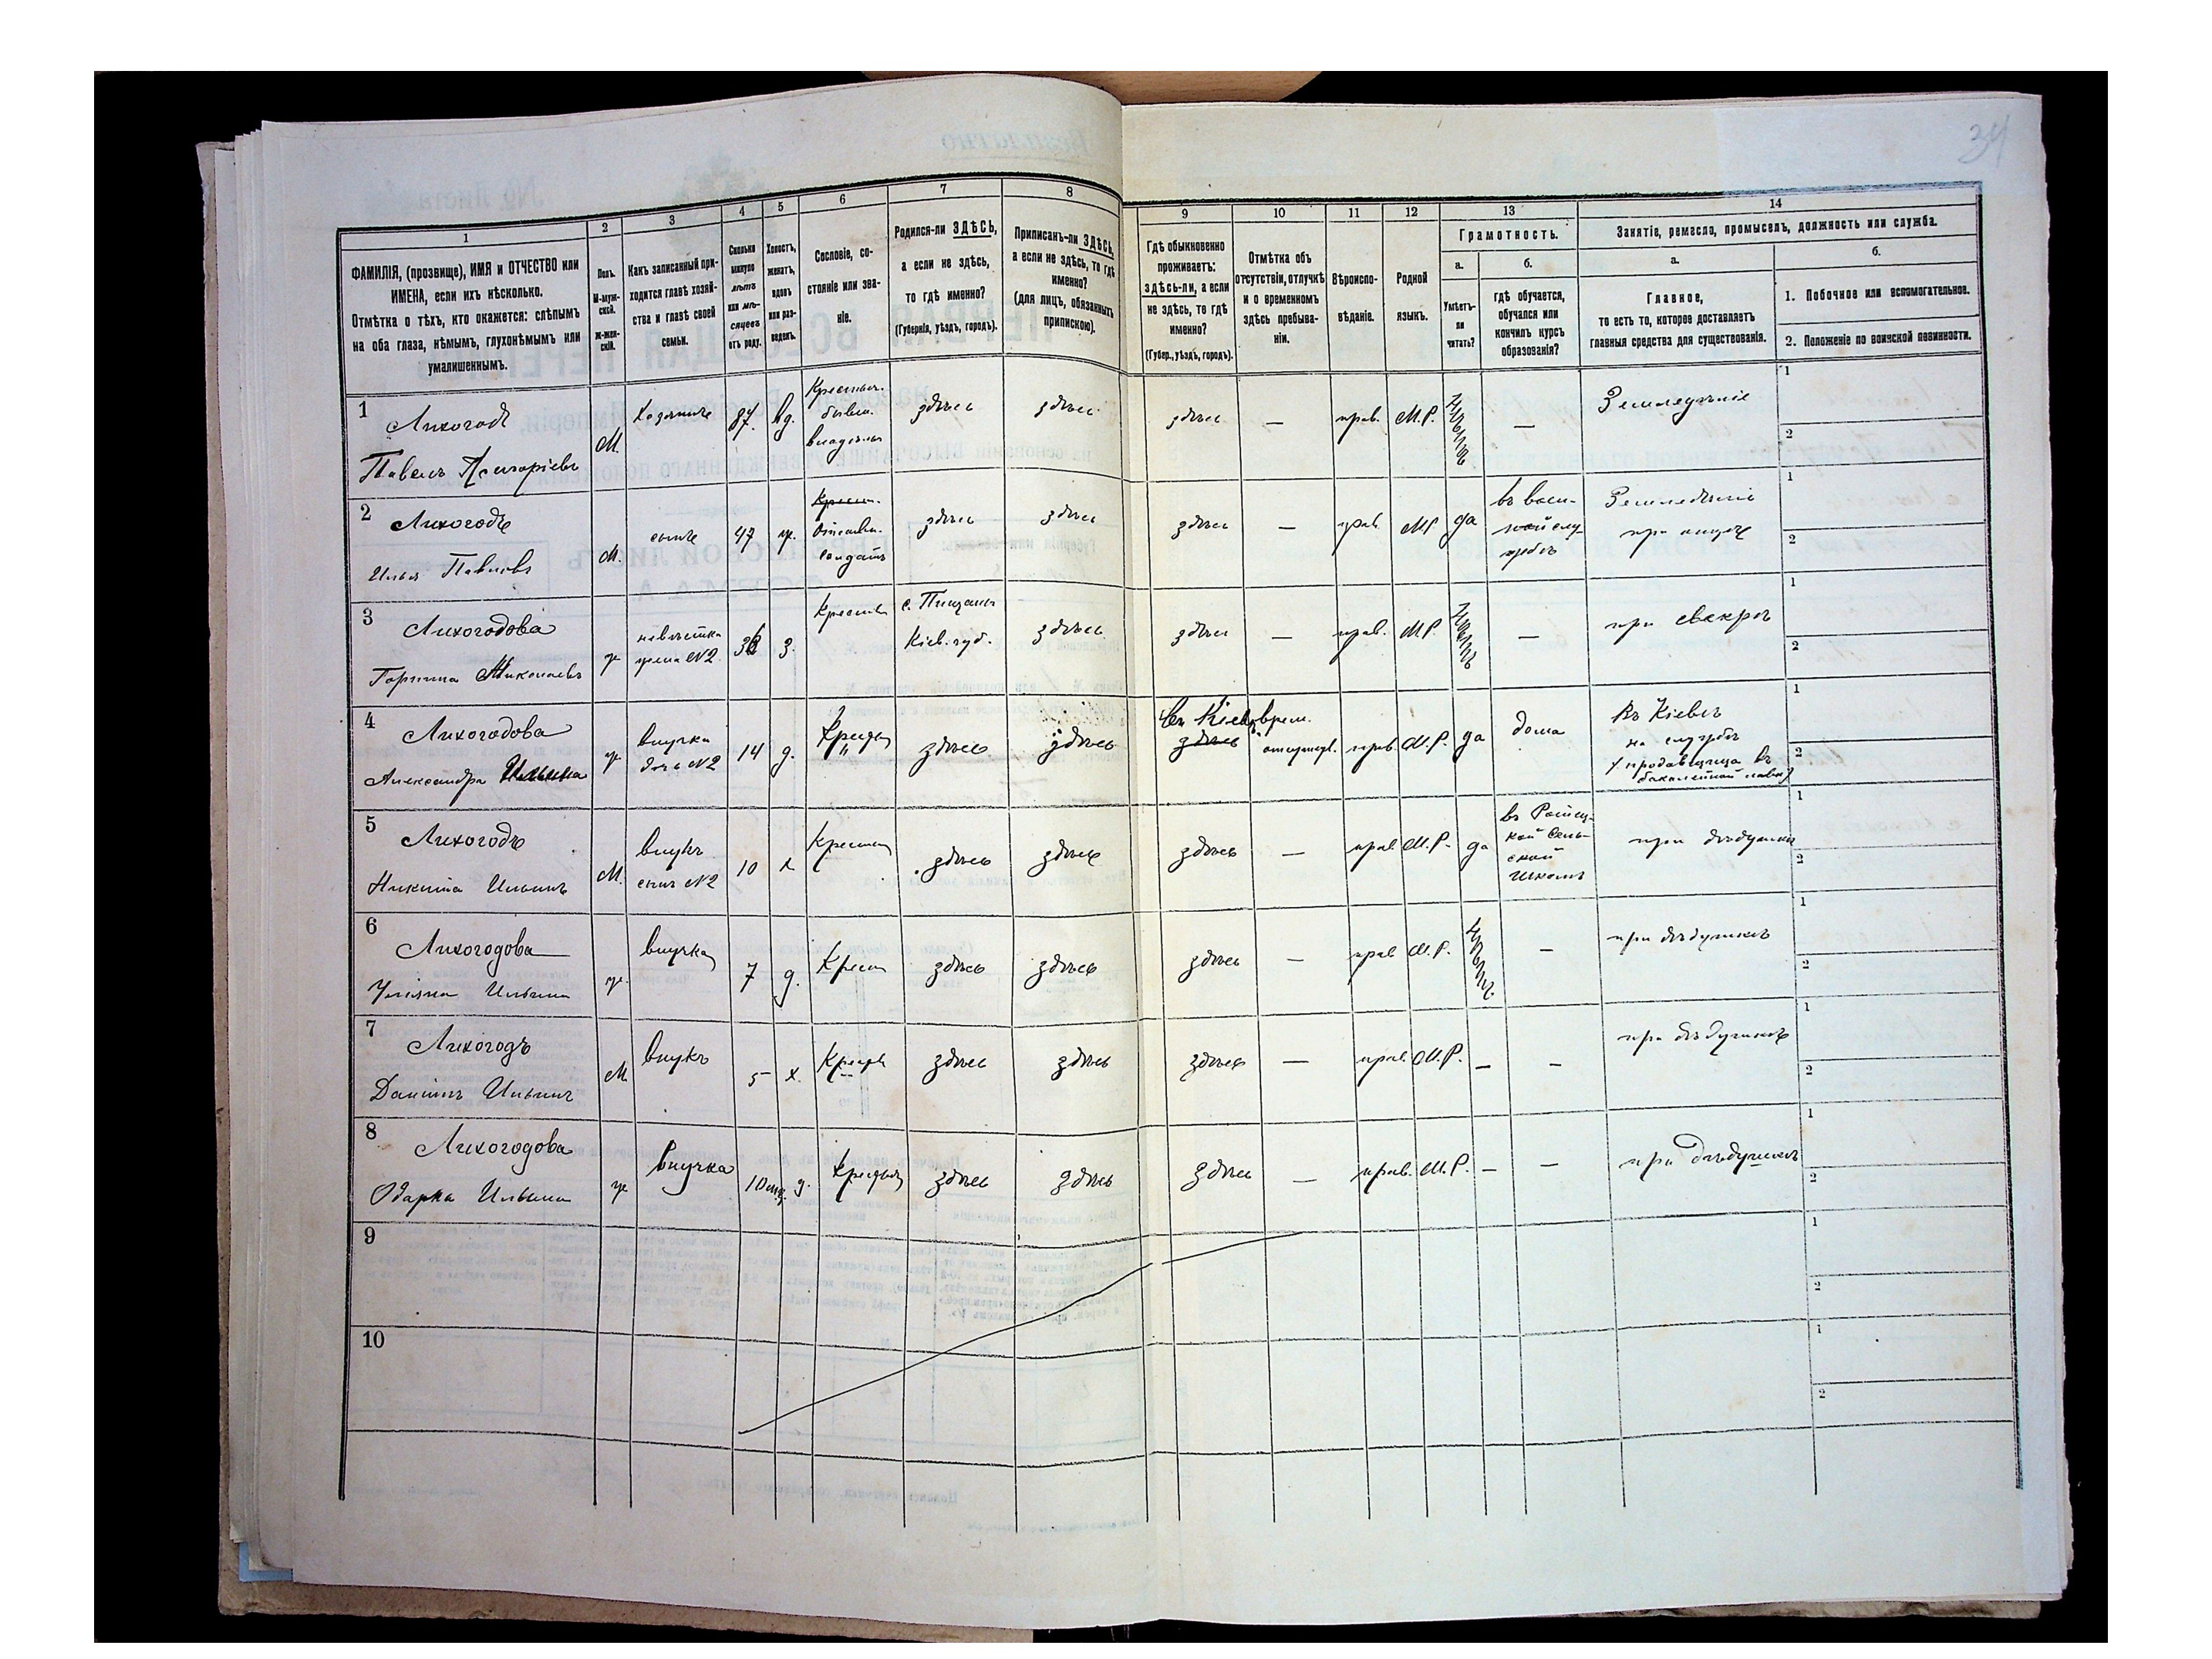 34
1
2
3
4
5
6
7
8
9
10
11
12
13
14
ФАМИЛІЯ, (прозвище), ИМЯ и ОТЧЕСТВО или
ИМЕНА, если ихъ нѣсколько.
Отмѣтка о тѣхъ, кто окажется: слѣпымъ
на оба глаза, нѣмымъ, глухонѣмымъ или
умалишеннымъ.
Полъ.
М-муж-
ской.
Ж-жен-
скій.
Какъ записанный при-
ходится главѣ хозяй-
ства и главѣ своей
семьи.
Сколько
минуло
лѣтъ
или мѣ-
сяцевъ
отъ роду.
Холостъ,
женатъ,
вдовъ
или раз-
веденъ.
Сословіе, со-
стояніе или зва-
ніе.
Родился-ли ЗДѢСЬ,
а если не здѣсь,
то гдѣ именно?
(Губернія, уѣздъ, городъ).
Приписанъ-ли ЗДѢСЬ,
а если не здѣсь, то гдѣ
именно?
(для лицъ, обязанныхъ
припискою).
Гдѣ обыкновенно
проживаетъ:
здѣсь-ли, а если
не здѣсь, то гдѣ
именно?
(Губер., уѣздъ, городъ).
Отмѣтка объ
отсутствіи, отлучкѣ
и о временномъ
здѣсь пребыва-
ніи.
Вѣроиспо-
вѣданіе.
Родной
языкъ.
Грамотность.
а.
Умѣетъ-
ли
читать?
б.
гдѣ обучается,
обучался или
кончилъ курсъ
образованія?
Занятіе, ремесло, промыселъ, должность или служба.
а.
Главное,
то есть то, которое доставляетъ
главныя средства для существованія.
б.
1. Побочное или вспомогательное.
2. Положеніе по воинской повинности.
1
Лихогодъ
Павелъ Григоріевъ
М.
Хозяинъ
87.
вд.
Крестьян.
бывш.
владѣльч
здѣсь
здѣсь
здѣсь
—
прав.
М.Р.
—
Земледѣліе
1
2
2
Лихогодъ
Илья Павловъ
М.
сынъ
47
ж.
Крест.
Отставн.
солдатъ
здѣсь
здѣсь
здѣсь
—
прав.
МР
да
въ воен-
ной слу-
жбѣ
Земледѣліе
при отцѣ
1
2
3
Лихогодова
Горпина Николаева
ж
невѣстка
жена №2.
36
з.
Крестья
с. Пищань
Кіев. губ.
здѣсь
здѣсь
—
прав.
МР.
—
при свекрѣ
1
2
4
Лихогодова
Александра Ильина
ж
внучка
дочь №2
14
д.
Крестья
здѣсь
здѣсь
въ Кіевѣ
здѣсь
врем.
отсутств.
прав.
М.Р.
да
дома
Въ Кіевѣ
на службѣ
(продавщица въ
бакалейной лавкѣ)
1
2
5
Лихогодъ
Никита Ильинъ
М.
внукъ
сынъ №2
10
х
Крестья
здѣсь
здѣсь
здѣсь
—
прав
М.Р.
да
въ
кой Сель-
ской
школѣ
при дѣдушкѣ
1
2
6
Лихогодова
Уліяна Ильина
ж.
внучка
7
д.
Крест
здѣсь
здѣсь
здѣсь
—
прав
М.Р.
—
при дѣдушкѣ
1
2
7
Лихогодъ
Даніилъ Ильинъ
М
внукъ
5
х.
Крестья
здѣсь
здѣсь
здѣсь
—
прав.
М.Р.
—
—
при дѣдушкѣ
1
2
8
Лихогодова
Одарка Ильина
ж
внучка
10 мѣс.
д.
Крестья
здѣсь
здѣсь
здѣсь
—
прав.
М.Р.
—
—
при дѣдушкѣ
1
2
9
1
2
10
1
2